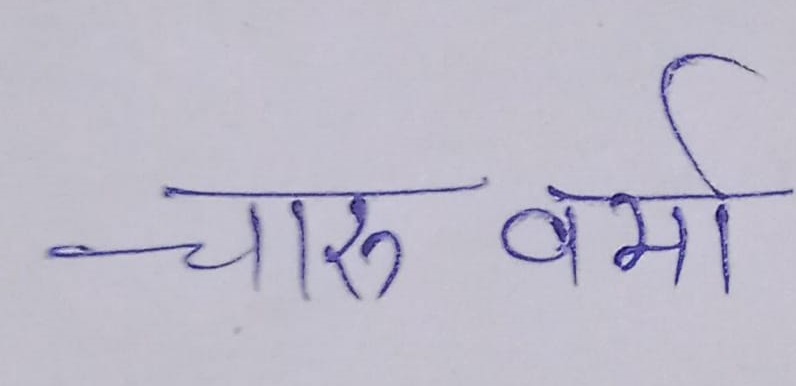 चारु वर्मा